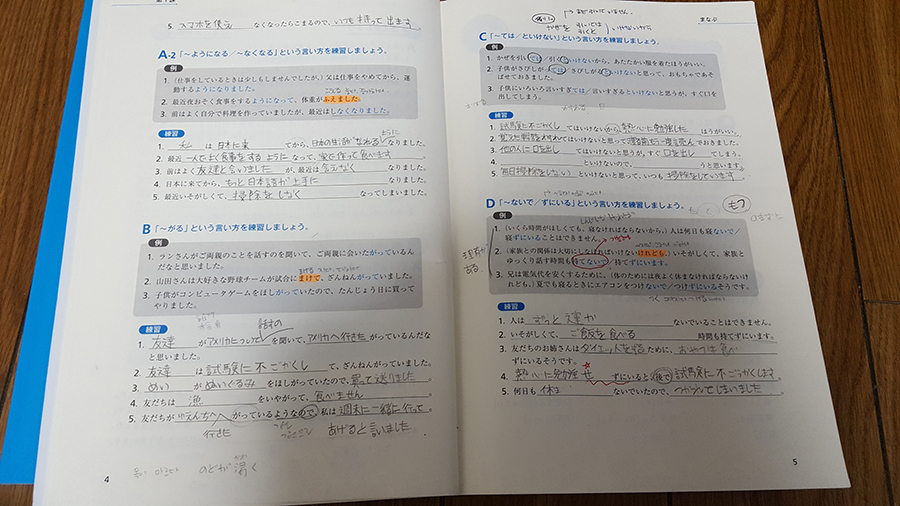 5. スマホを使え なくなったらこまるので、いつも持って出ます
A-2 「～ようになる／～なくなる」という言い方を練習しましょう。
例
1. (仕事をしているときは少しもしませんでしたが、)父は仕事をやめてから、運
動するようになりました。
2. 最近夜おそく食事をするようになって、体重がふえました。
3. 前はよく自分で料理を作っていましたが、最近はしなくなりました。
練習
1. 私 は 日本に来 てから、日本の生活が なれる ように なりました。
2. 最近 一人でよく食事をする ように なって、家で作って食べます
3. 前はよく 友達と会いました が、最近は 会えなく なりました。
4. 日本に来てから、もっと日本語が上手に なりました。
5. 最近いそがしくて、掃除をしなく なってしまいました。
B 「～がる」という言い方を練習しましょう。
例
1. ランさんがご両親のことを話すのを聞いて、ご両親に会いたがっているん
だなと思いました。
2. 山田さんは大好きな野球チームが試合にまけて、ざんねんがっていました。
3. 子供がコンピュータゲームをほしがっていたので、たんじょう日に買って
やりました。
練習
話すの
1. 友達 がアメリカについて を聞いて、アメリカへ行きた がっているんだな
と思いました。
2. 友達 は 試験に不ごうかくし て、ざんねんがっていました。
3. めい が ぬいぐるみ をほしがっていたので、買って送りました。
4. 友だちは 漁 をいやがって、食べません。
5. 友だちが ゆえんちへ がっているようなので、私は 週末に一緒に行って
行きた あげると言いました
のどが渇く
4
まなぶ
C 「～ては／といけない」という言い方を練習しましょう。
例
1. かぜを引いては／引くといけないから、あたたかい服を着たほうがいい。
2. 子供がさびしがっては／さびしがるといけないと思って、おもちゃであそ
ばせておきました。
3. 子供にいろいろ言いすぎては／言いすぎるといけないと思うが、すぐ口を
出してしまう。
練習
1. 試験に不ごうかくし てはいけないから、熱心に勉強した ほうがいい。
2. てはいけないと思って ておきました。
3. 他の人に口を出し てはいけないと思うが、すぐ口を出し てしまう。
4. といけないので、 うと思います。
5. 毎日掃除をしない といけないと思って、いつも 掃除をしています。
D 「～ないで／ずにいる」という言い方を練習しましょう。
もつ
例
1. (いくら時間がほしくても、寝なければならないから、)人は何日も寝ないで／
寝ずにいることはできません。
2. (家族との関係は大切にしなければいけないけれども、)いそがしくて、家族と
ゆっくり話す時間も持てないで／持てずにいます。
3. 兄は電気代を安くするために、(体のためには夜よく休まなければならないけ
れども、)夏でも寝るときにエアコンをつけないで／つけずにいるそうです。
練習
1. 人は ずっと ないでいることはできません。
2. いそがしくて、ご飯を食べる 時間も持てずにいます。
3. 友だちのお姉さんは ダイエット ために、おやつは食べ
ずにいるそうです。
4. 熱心に勉強せ ずにいると 後で 試験に不ごうかくします
5. 何日も 休ま ないでいたので、つかれてしまいました。
5